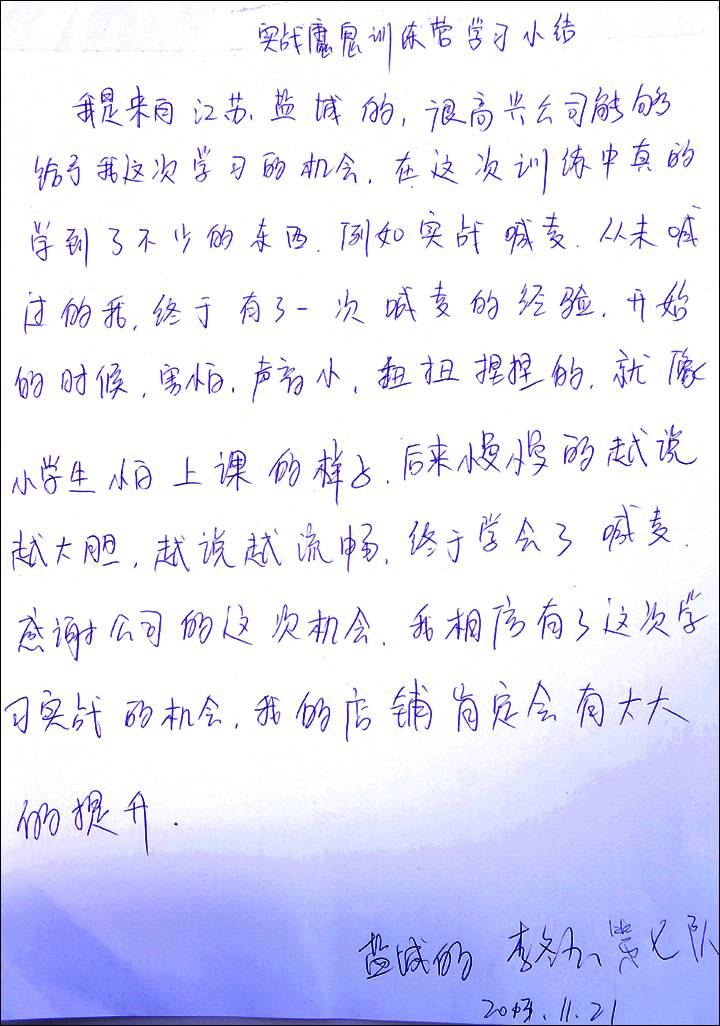 实战魔鬼训练营学习小结
我是来自江苏盐城的,很高兴公司能够
给予我这次学习的机会.在这次训练中真的
学到了不少的东西.例如实战喊麦.从未喊
过的我,终于有了一次喊麦的经验.开始
的时候,害怕.声音小,扭扭捏捏的.就像
小学生怕上课的样子.后来慢慢的越说
越大胆,越说越流畅.终于学会了喊麦.
感谢公司的这次机会.我相信有了这次学
习实战的机会,我的店铺肯定会有大大
的提升.
盐城的 李 第七队
11.21